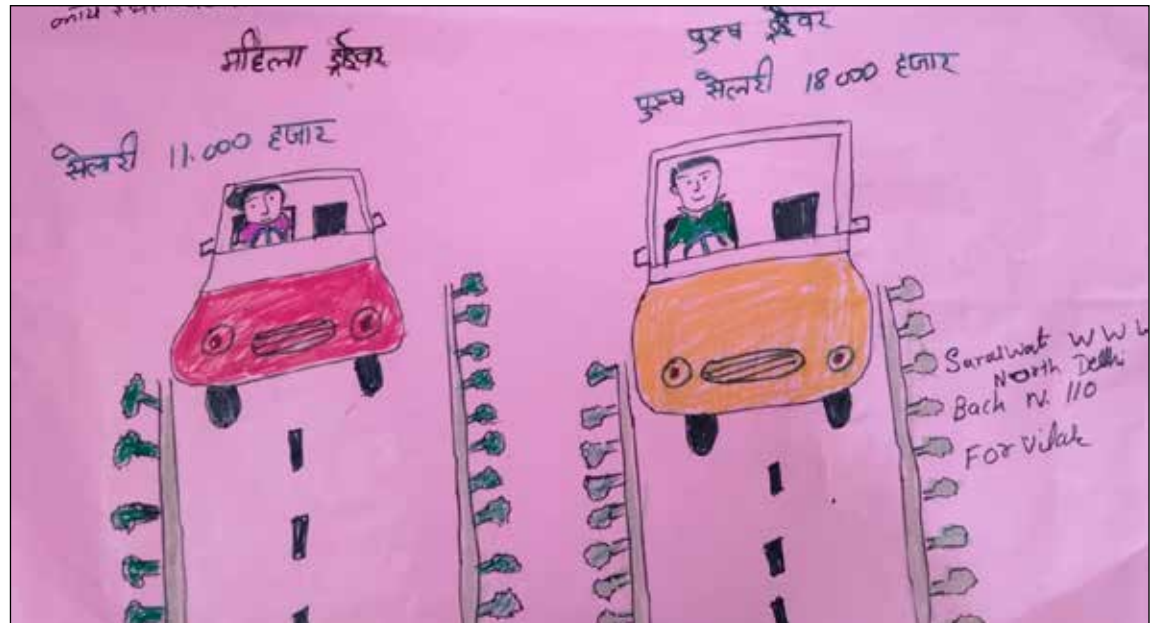 महिला ड्राईवर
सेलरी 11.000 हजार
पुरुष ड्राईवर
पुरुष सेलरी 18000 हजार
Saraswat W W
North Delhi
Bach N. 110